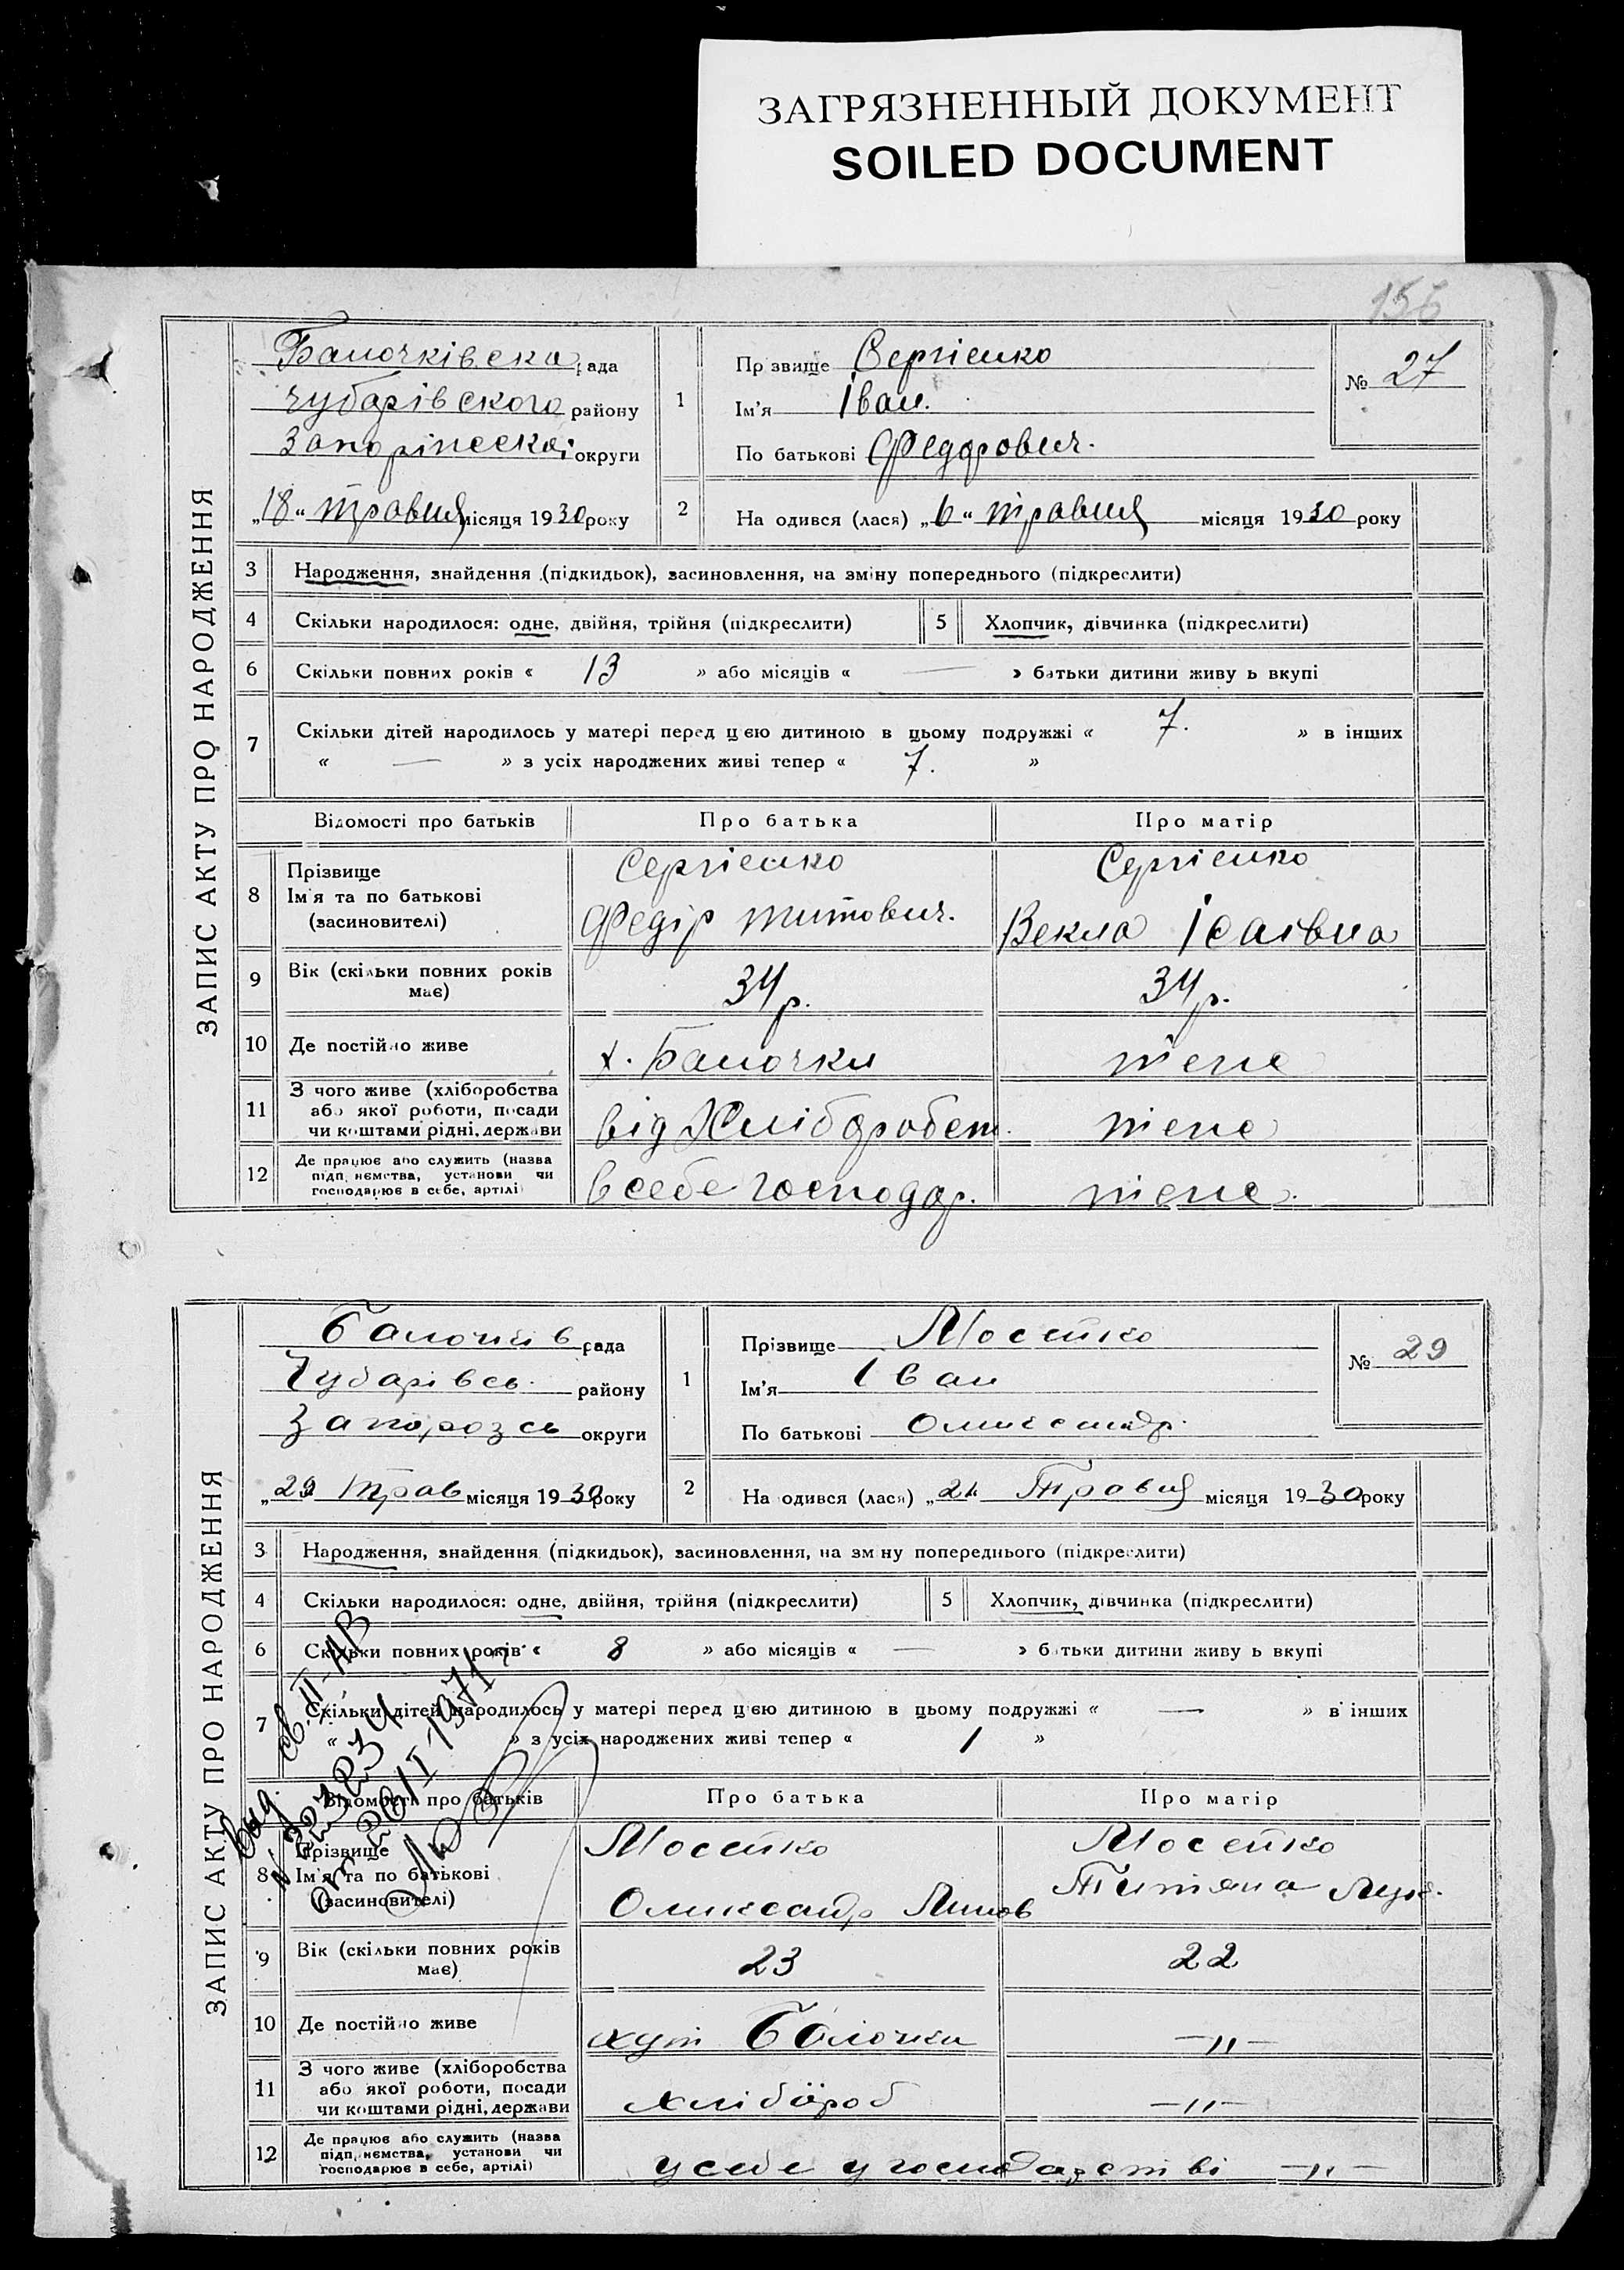 ЗАГРЯЗНЕННЫЙ ДОКУМЕНТ
SOILED DOCUMENT
156
ЗАПИС АКТУ ПРО НАРОДЖЕННЯ
Балочківська рада
Чубарівського району
округи
„18“ травня місяця 1930 року
1
Прізвище Сергієнко
Ім'я Іван.
По батькові Федорович.
№ 27
2
На одився (лася) „6“ травня місяця 1930 року
3 Народження, знайдення (підкидьок), засиновлення, на зміну попереднього (підкреслити)
4 Скільки народилося: одне, двійня, трійня (підкреслити) 5 Хлопчик, дівчинка (підкреслити)
6 Скільки повних років « 13 » або місяців « — » батьки дитини живу ь вкупі
7 Скільки дітей народилось у матері перед цією дитиною в цьому подружжі « 7. » в інших
« — » з усіх народжених живі тепер « 7. »
Відомості про батьків Про батька Про матір
8 Прізвище Сергієнко Сергієнко
Ім'я та по батькові
(засиновителі) Федір Титович. Векла Ісаївна
9 Вік (скільки повних років
має) 34 р. 34 р.
10 Де постійно живе х. Балочки теж
11 З чого живе (хліборобства
або якої роботи, посади
чи коштами рідні, держави від Хліборобст. теж
12 Де працює або служить (назва
підп иємства, установи чи
господарює в себе, артілі) в себе господар. теж
ЗАПИС АКТУ ПРО НАРОДЖЕННЯ
Балочків рада
Чубарівсь. району
Запорозсь округи
„29 трав місяця 1930 року
1
Прізвище Мосейко
Ім'я Іван
По батькові Олександр.
№ 29
2
На одився (лася) „21 Травня місяця 1930 року
3 Народження, знайдення (підкидьок), засиновлення, на зм ну попереднього (підкреслити)
4 Скільки народилося: одне, двійня, трійня (підкреслити) 5 Хлопчик, дівчинка (підкреслити)
6 Скільки повних років « 8 » або місяців « — » б тьки дитини живу ь вкупі
7 Скільки дітей народилось у матері перед цією дитиною в цьому подружжі « — » в інших
« » з усіх народжених живі тепер « 1 »
Відомості про батьків Про батька Про матір
8 Прізвище Мосейко Мосейко
Ім'я та по батькові
(засиновителі) Олександр Титяна
9 Вік (скільки повних років
має) 23 22
10 Де постійно живе хут Балочки —„—
11 З чого живе (хліборобства
або якої роботи, посади
чи коштами рідні, держави хлібороб —„—
12 Де працює або служить (назва
підп иємства, установи чи
господарює в себе, артілі) у себе у господарстві —„—
Выд. св. II-
от 20/I-1971 г